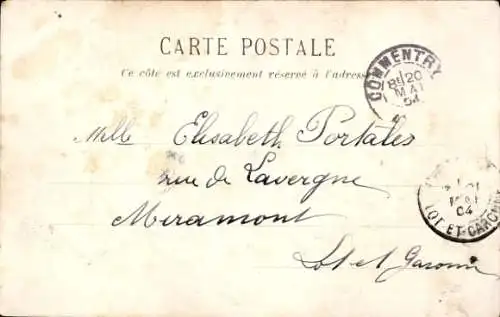 CARTE POSTALE
Ce côté est exclusivement réservé à l'adresse
COMMENTRY
8 20
MAI
04
Melle Elisabeth Portales
rue de Lavergne
Miramont
Lot et Garonne
MAI
04
LOT ET GARONNE